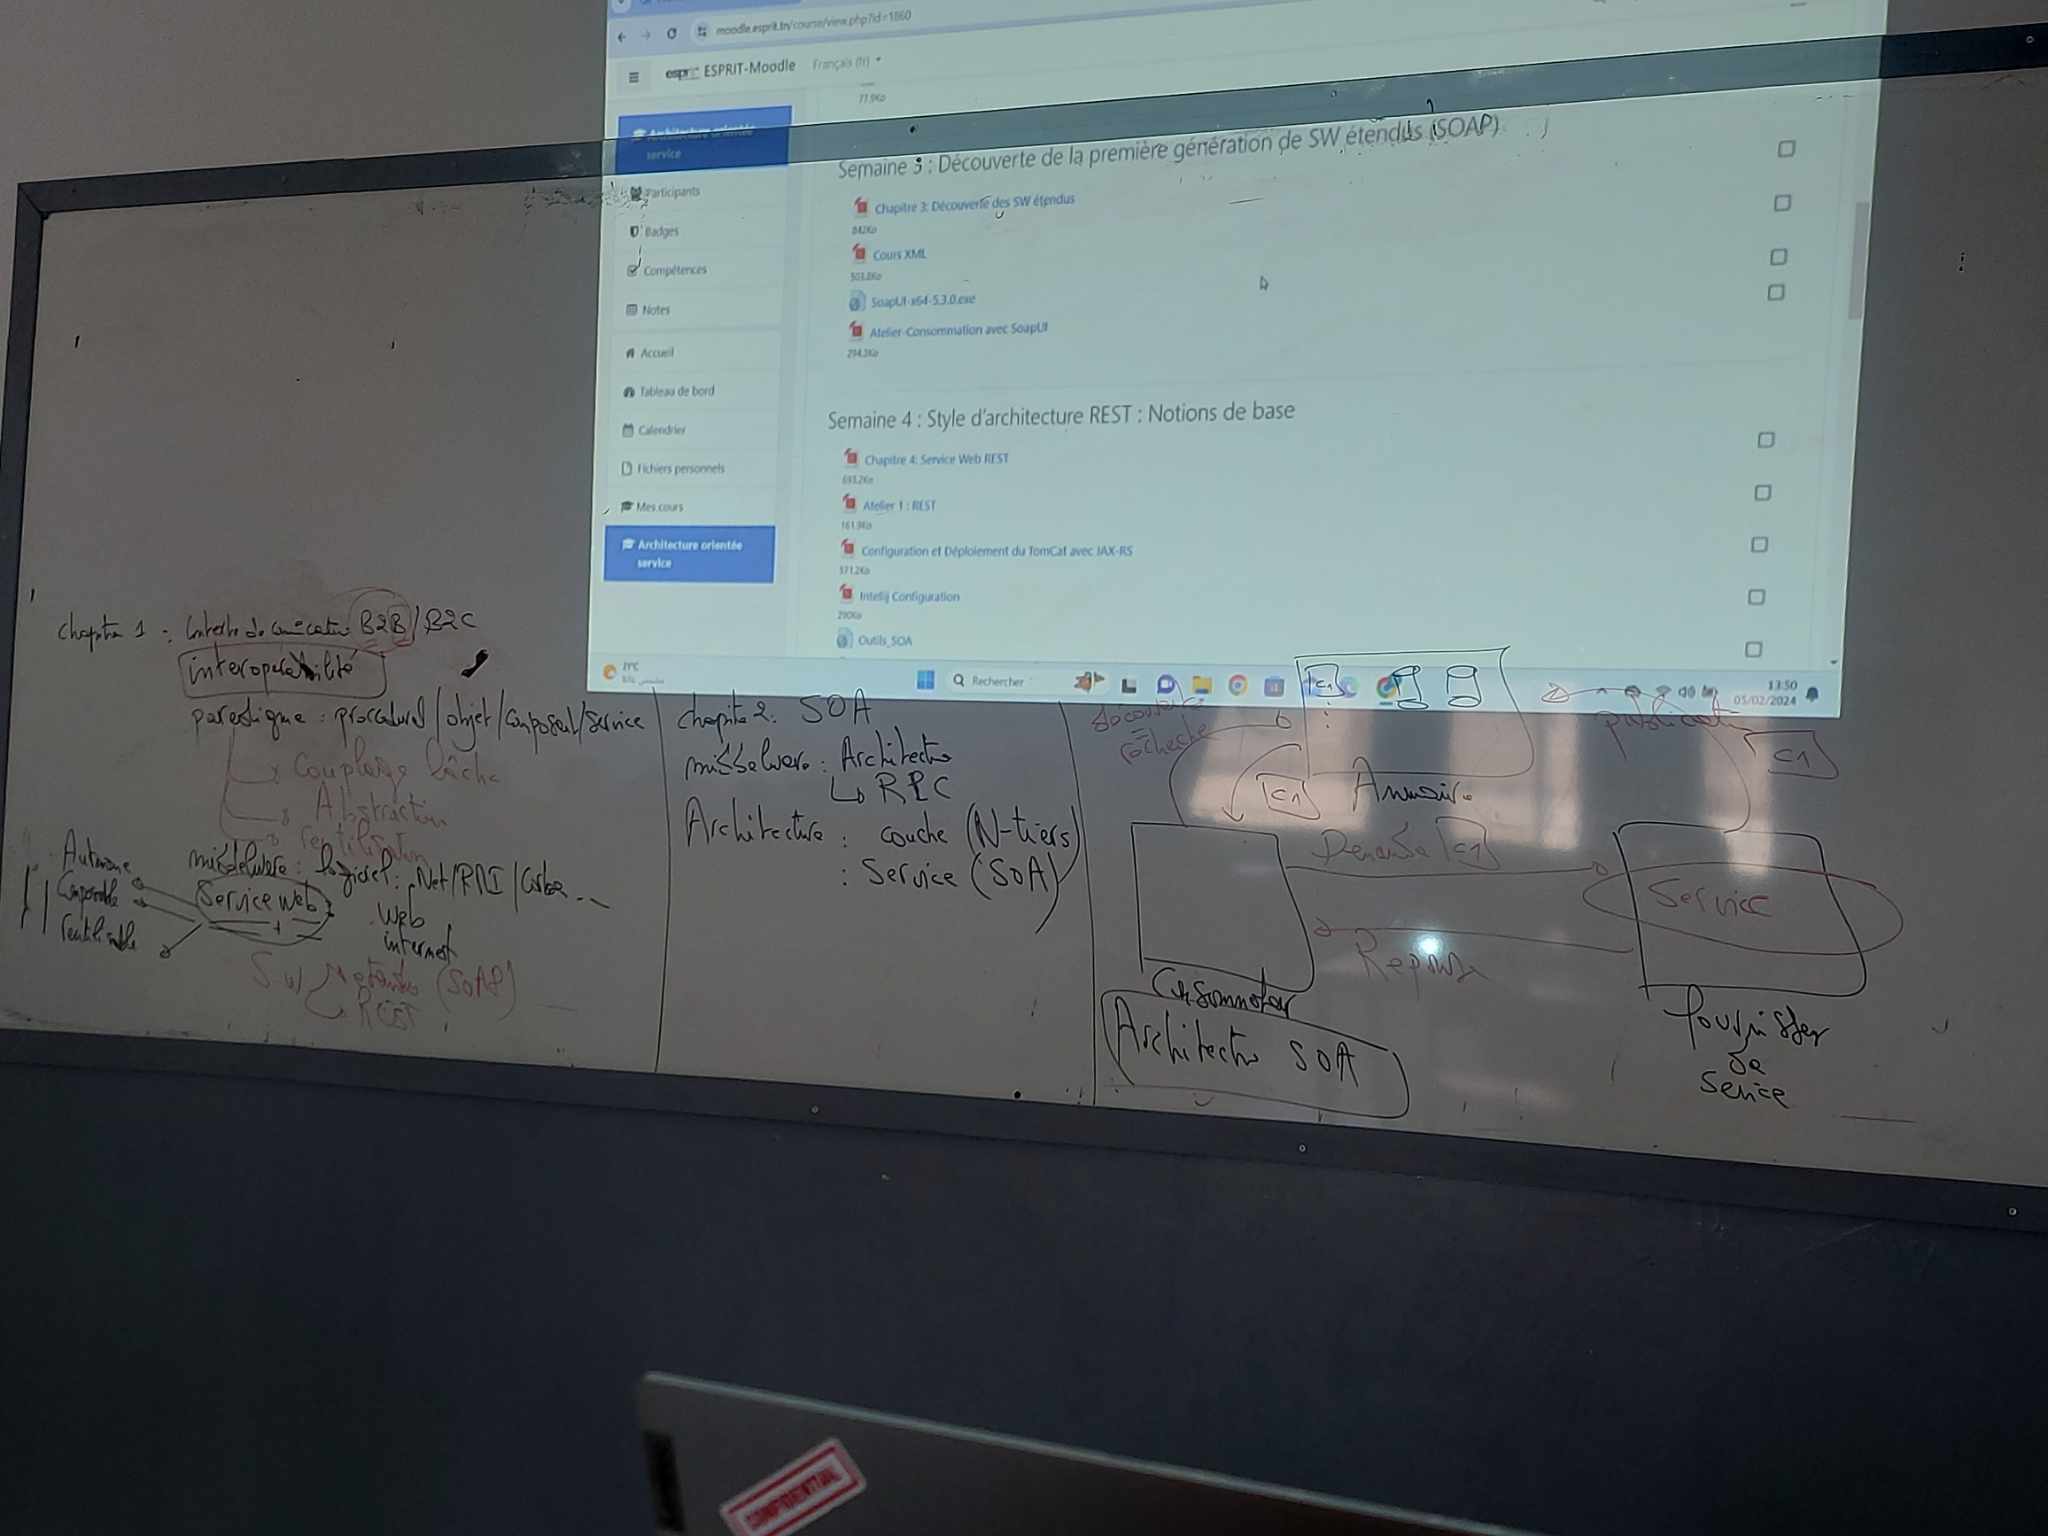 moodle.esprit.tn/course/view.php?id=1860
esprit ESPRIT-Moodle Français (fr)
77.9Ko
Architecture orientée
service
Participants
Badges
Compétences
Notes
Accueil
Tableau de bord
Calendrier
Fichiers personnels
Mes cours
Architecture orientée
service
Semaine 3 : Découverte de la première génération de SW étendus (SOAP)
Chapitre 3: Découverte des SW étendus
842Ko
Cours XML
503.8Ko
SoapUI-x64-5.3.0.exe
Atelier-Consommation avec SoapUI
294.3Ko
Semaine 4 : Style d'architecture REST : Notions de base
Chapitre 4: Service Web REST
693.2Ko
Atelier 1 : REST
161.9Ko
Configuration et Déploiement du TomCat avec JAX-RS
571.2Ko
Intellij Configuration
290Ko
Outils_SOA
21°C
Rechercher
13:50
05/02/2024
chapitre 1 : B2B / B2C
interoperabilité
paradigme : procedural / objet / composant / service
couplage lâche
Abstraction
reutilisation
middelware : logiciel : .Net / RMI / Corba ...
Autonome
Composable
reutilisable
Service web
web
internet
SW etendus (SOAP)
REST
chapitre 2 : SOA
middelware : Architecture
RPC
Architecture : couche (N-tiers)
: Service (SOA)
découverte
recherche
C1
publication
C1
C1
Annuaire
Demande C1
Service
Reponse
Consommateur
Fournisseur
de
service
Architecture SOA
CONFIDENTIAL